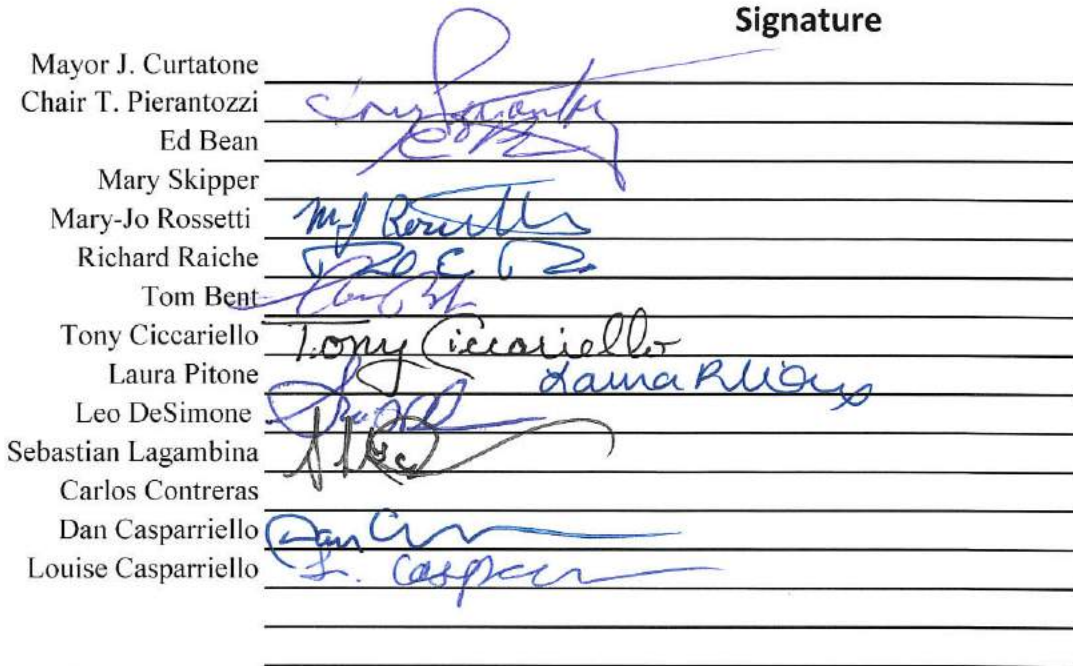 Signature
Mayor J. Curtatone
Chair T. Pierantozzi
Ed Bean
Mary Skipper
Mary-Jo Rossetti M-J Rossetti
Richard Raiche
Tom Bent
Tony Ciccariello Tony Ciccariello
Laura Pitone Laura
Leo DeSimone
Sebastian Lagambina
Carlos Contreras
Dan Casparriello Dan
Louise Casparriello L.